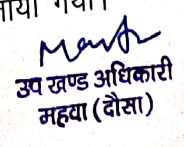 गया।
उप खण्ड अधिकारी
महवा (दौसा)